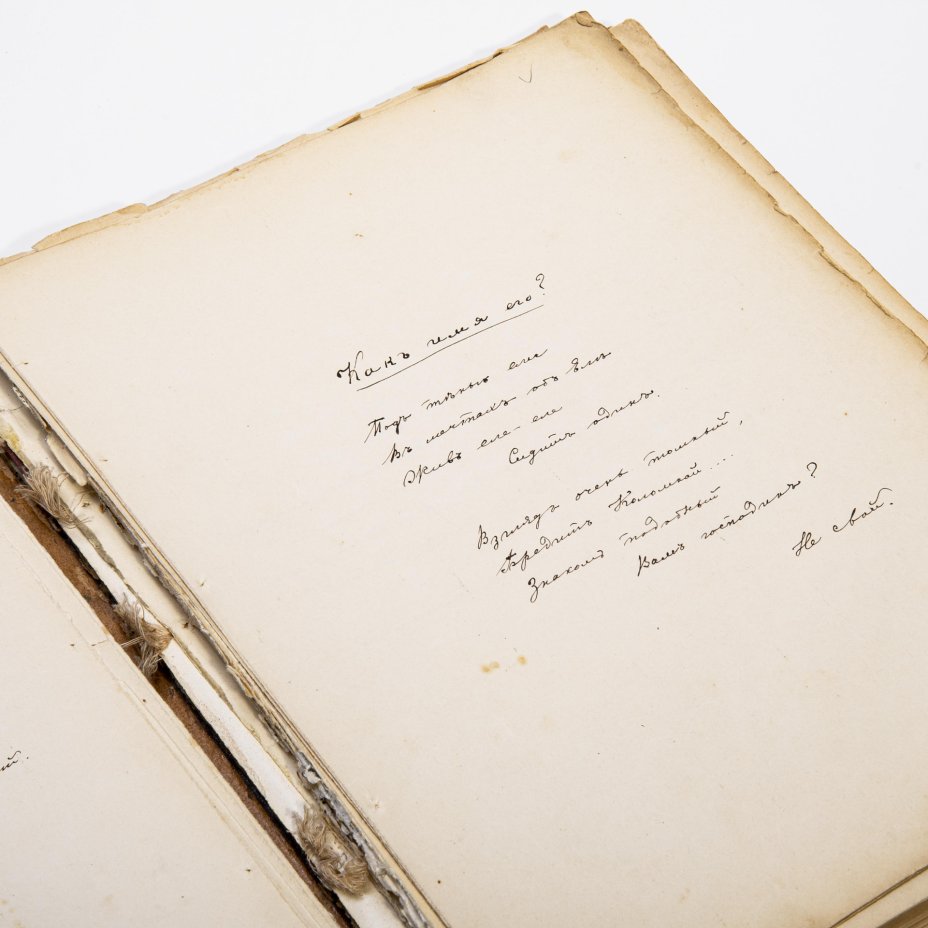 Какъ имя его?
Подъ тѣнью ели
Въ мечтахъ объ Эмъ
Живъ еле-еле
Сидитъ одинъ.
Взглядъ очень томный,
Бредитъ Коломной....
Знакомъ подобный
Вамъ господинъ?
Не свой.
ий.